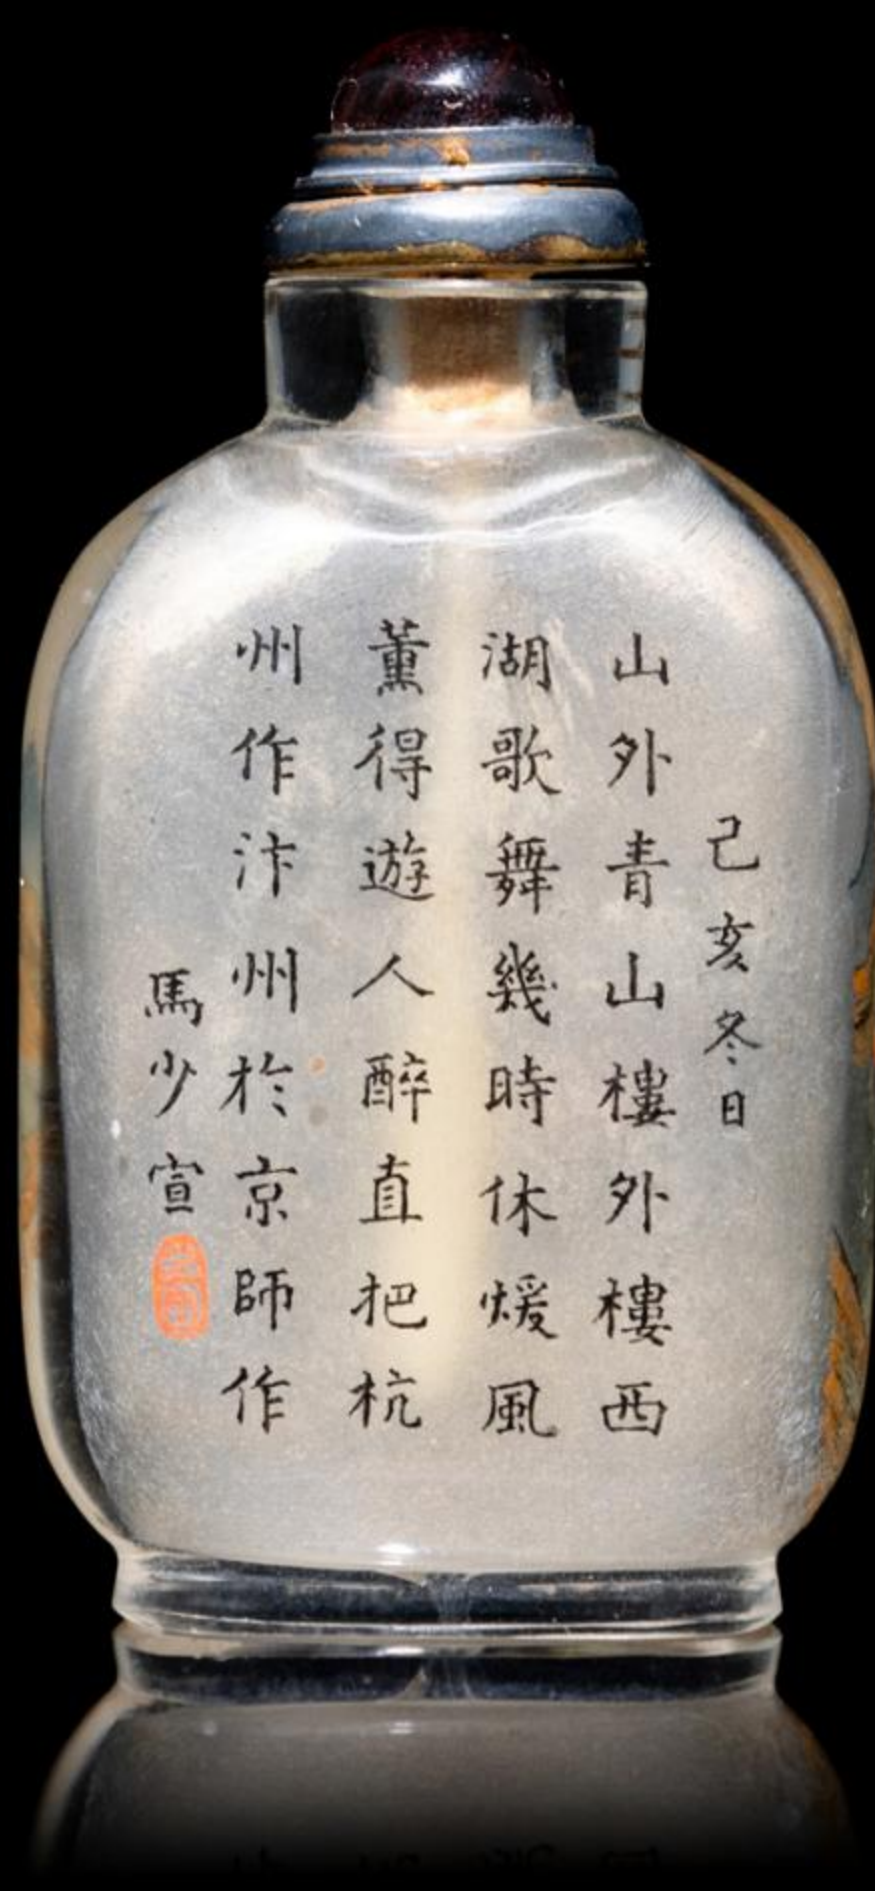 己亥冬日
山外青山樓外樓西
湖歌舞幾時休煖風
薰得遊人醉直把杭
州作汴州於京師作
馬少宣